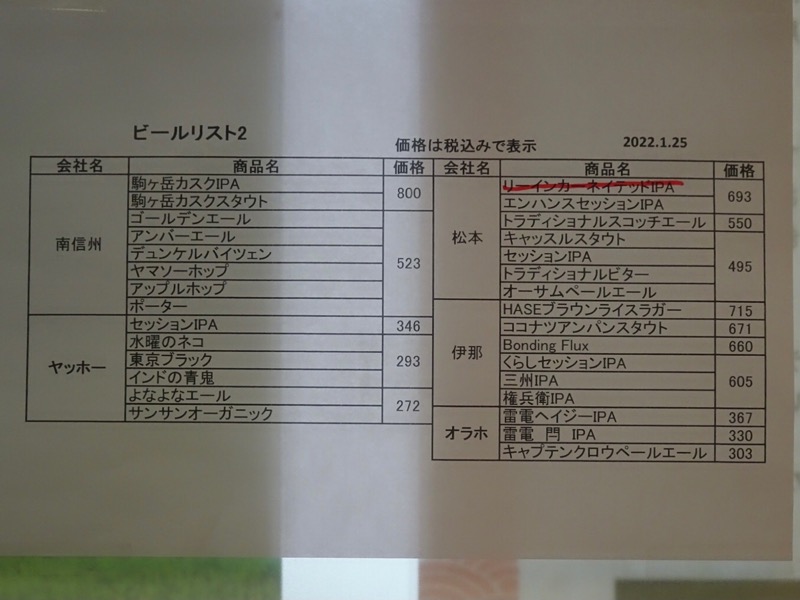 ビールリスト2
価格は税込みで表示
2022.1.25
会社名 商品名 価格
南信州
駒ヶ岳カスクIPA
駒ヶ岳カスクスタウト
800
ゴールデンエール
アンバーエール
デュンケルバイツェン
ヤマソーホップ
アップルホップ
ポーター
523
ヤッホー
セッションIPA 346
水曜のネコ
東京ブラック
インドの青鬼
293
よなよなエール
サンサンオーガニック
272
会社名 商品名 価格
松本
リーインカーネイテッドIPA
エンハンスセッションIPA
693
トラディショナルスコッチエール 550
キャッスルスタウト
セッションIPA
トラディショナルビター
オーサムペールエール
495
伊那
HASEブラウンライスラガー 715
ココナツアンパンスタウト 671
Bonding Flux 660
くらしセッションIPA
三州IPA
権兵衛IPA
605
オラホ
雷電ヘイジーIPA 367
雷電 閂 IPA 330
キャプテンクロウペールエール 303